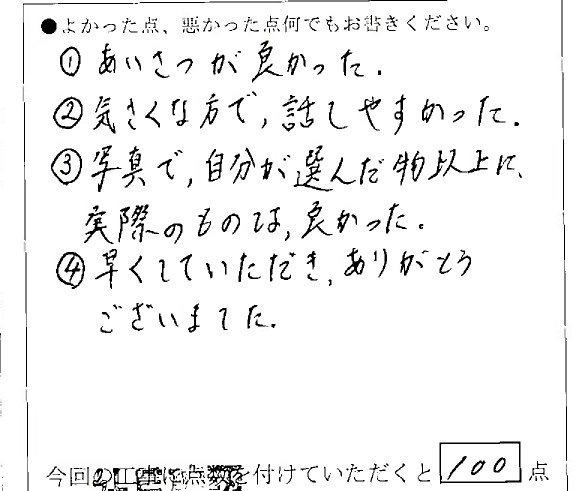 ●よかった点、悪かった点何でもお書きください。
① あいさつが良かった.
② 気さくな方で, 話しやすかった.
③ 写真で, 自分が選んだ物以上に、
実際のものは, 良かった.
④ 早くしていただき, ありがとう
ございました.
今回の工事に点数を付けていただくと 100 点